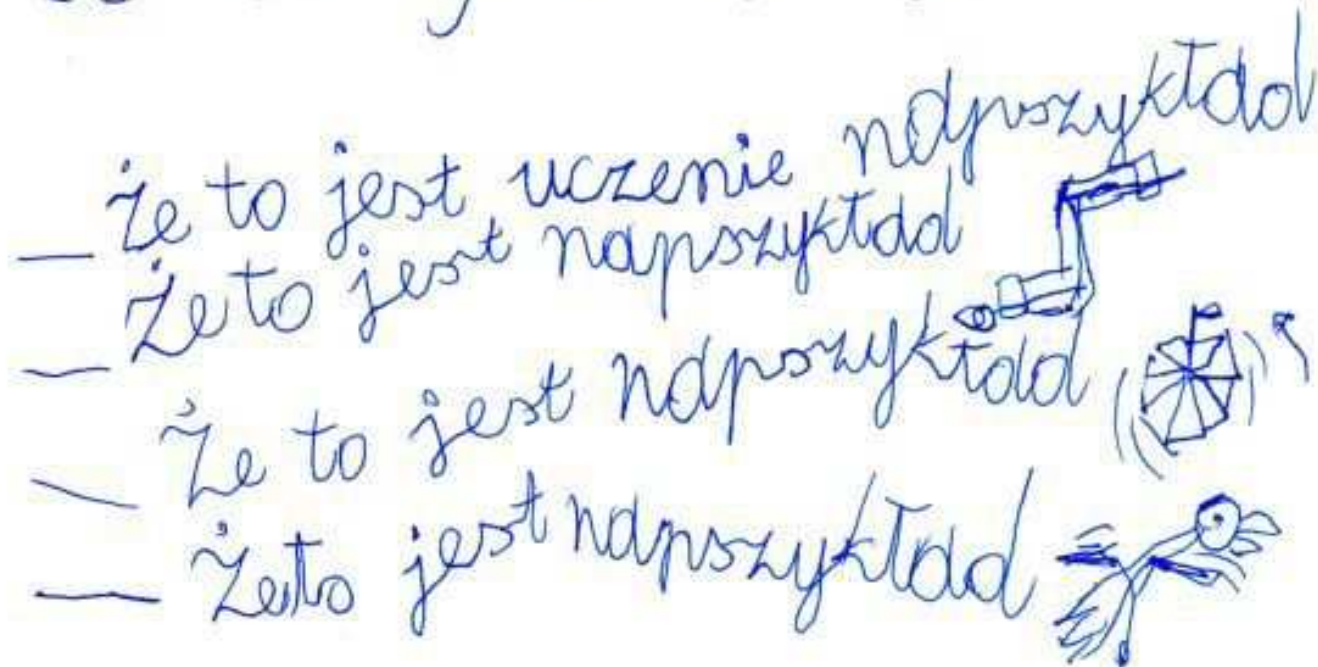 — że to jest uczenie napszykład
— Że to jest napszykład
— Że to jest napszykład
— Że to jest napszykład